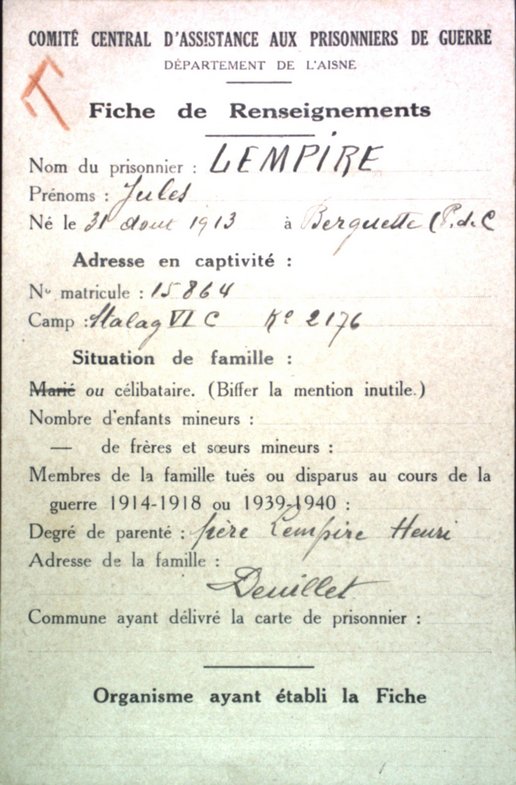 COMITÉ CENTRAL D'ASSISTANCE AUX PRISONNIERS DE GUERRE
DÉPARTEMENT DE L'AISNE
Fiche de Renseignements
Nom du prisonnier : LEMPIRE
Prénoms : Jules
Né le 31 Aout 1913 à Berguette (P.d.C
Adresse en captivité :
No matricule : 15864
Camp : Stalag VI C Ko 2176
Situation de famille :
Marié ou célibataire. (Biffer la mention inutile.)
Nombre d'enfants mineurs :
— de frères et sœurs mineurs :
Membres de la famille tués ou disparus au cours de la
guerre 1914-1918 ou 1939-1940 :
Degré de parenté : père Lempire Henri
Adresse de la famille :
Deuillet
Commune ayant délivré la carte de prisonnier :
Organisme ayant établi la Fiche